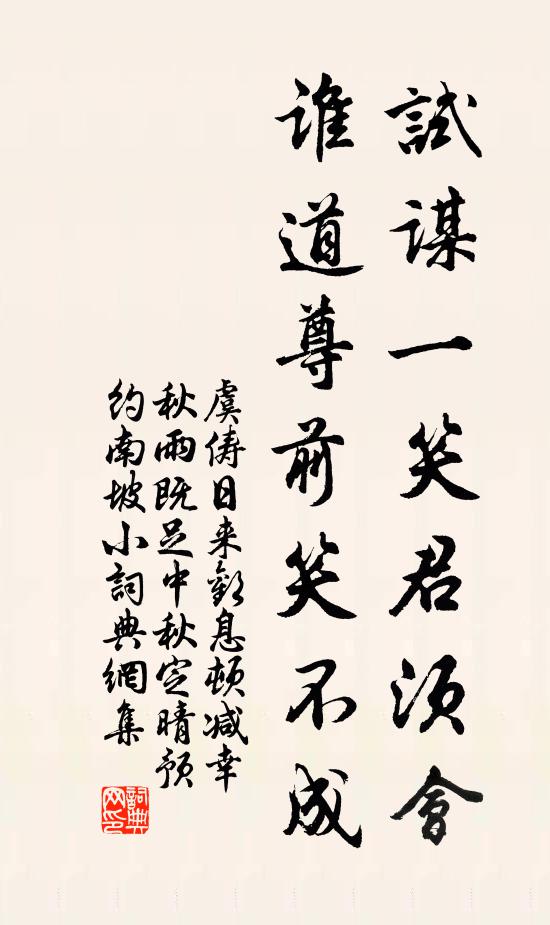 試謀一笑君須會
誰道尊前笑不成
虞儔日来歡息頓减幸
秋雨既足中秋定晴預
約南坡小詞典網集
詞典网印